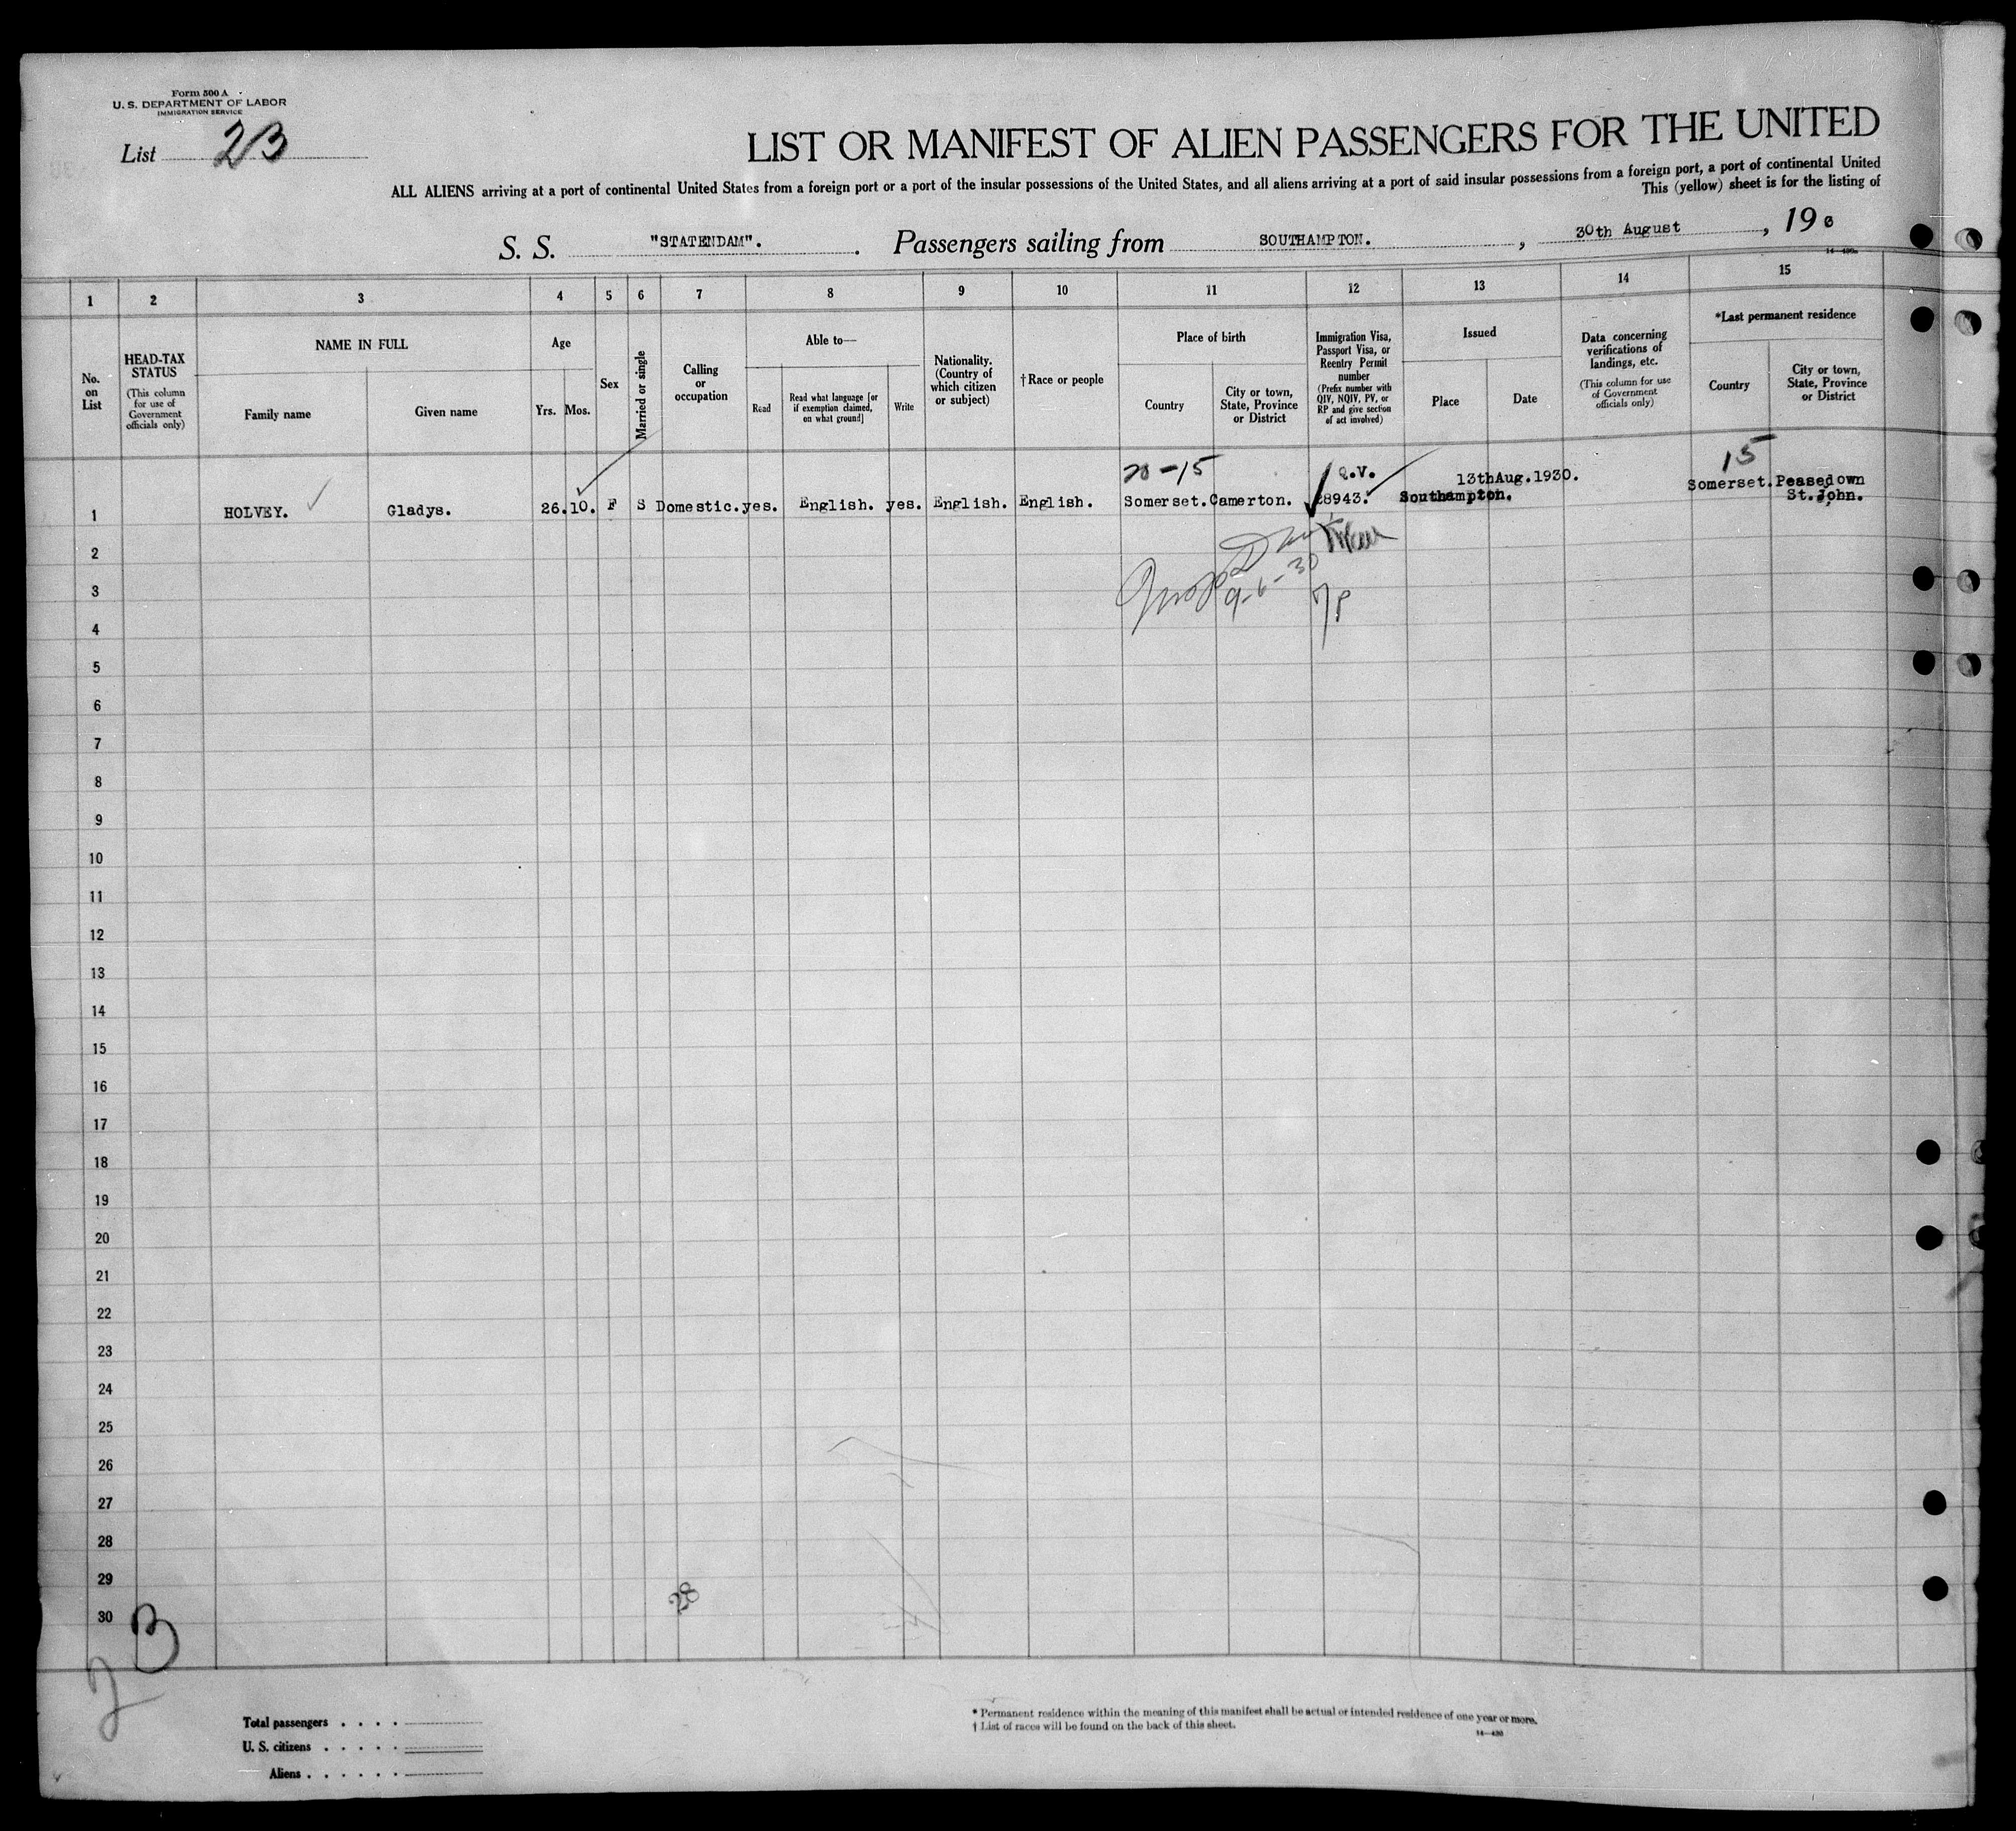 Form 500 A
U. S. DEPARTMENT OF LABOR
IMMIGRATION SERVICE
List 23
LIST OR MANIFEST OF ALIEN PASSENGERS FOR THE UNITED
ALL ALIENS arriving at a port of continental United States from a foreign port or a port of the insular possessions of the United States, and all aliens arriving at a port of said insular possessions from a foreign port, a port of continental United
This (yellow) sheet is for the listing of
S. S. "STATENDAM". Passengers sailing from SOUTHAMPTON. , 30th August , 19
14—430
1 2 3 4 5 6 7 8 9 10 11 12 13 14 15
No. on List
HEAD-TAX STATUS
(This column for use of Government officials only)
NAME IN FULL
Family name
Given name
Age
Yrs. Mos.
Sex
Married or single
Calling or occupation
Able to—
Read
Read what language [or if exemption claimed, on what ground]
Write
Nationality. (Country of which citizen or subject)
† Race or people
Place of birth
Country
City or town, State, Province or District
Immigration Visa, Passport Visa, or Reentry Permit number
(Prefix number with QIV, NQIV, PV, or RP and give section of act involved)
Issued
Place
Date
Data concerning verifications of landings, etc.
(This column for use of Government officials only)
*Last permanent residence
Country
City or town, State, Province or District
15
Q.V. 13thAug.1930.
1 HOLVEY. Gladys. 26.10. F S Domestic. yes. English. yes. English. English. Somerset. Camerton. 28943. Southampton. Somerset. Peasedown St. John.
9-6-30
2
3
4
5
6
7
8
9
10
11
12
13
14
15
16
17
18
19
20
21
22
23
24
25
26
27
28
29
30
28
23
Total passengers . . . .
U. S. citizens . . . . .
Aliens . . . . . .
* Permanent residence within the meaning of this manifest shall be actual or intended residence of one year or more.
† List of races will be found on the back of this sheet.
14—430